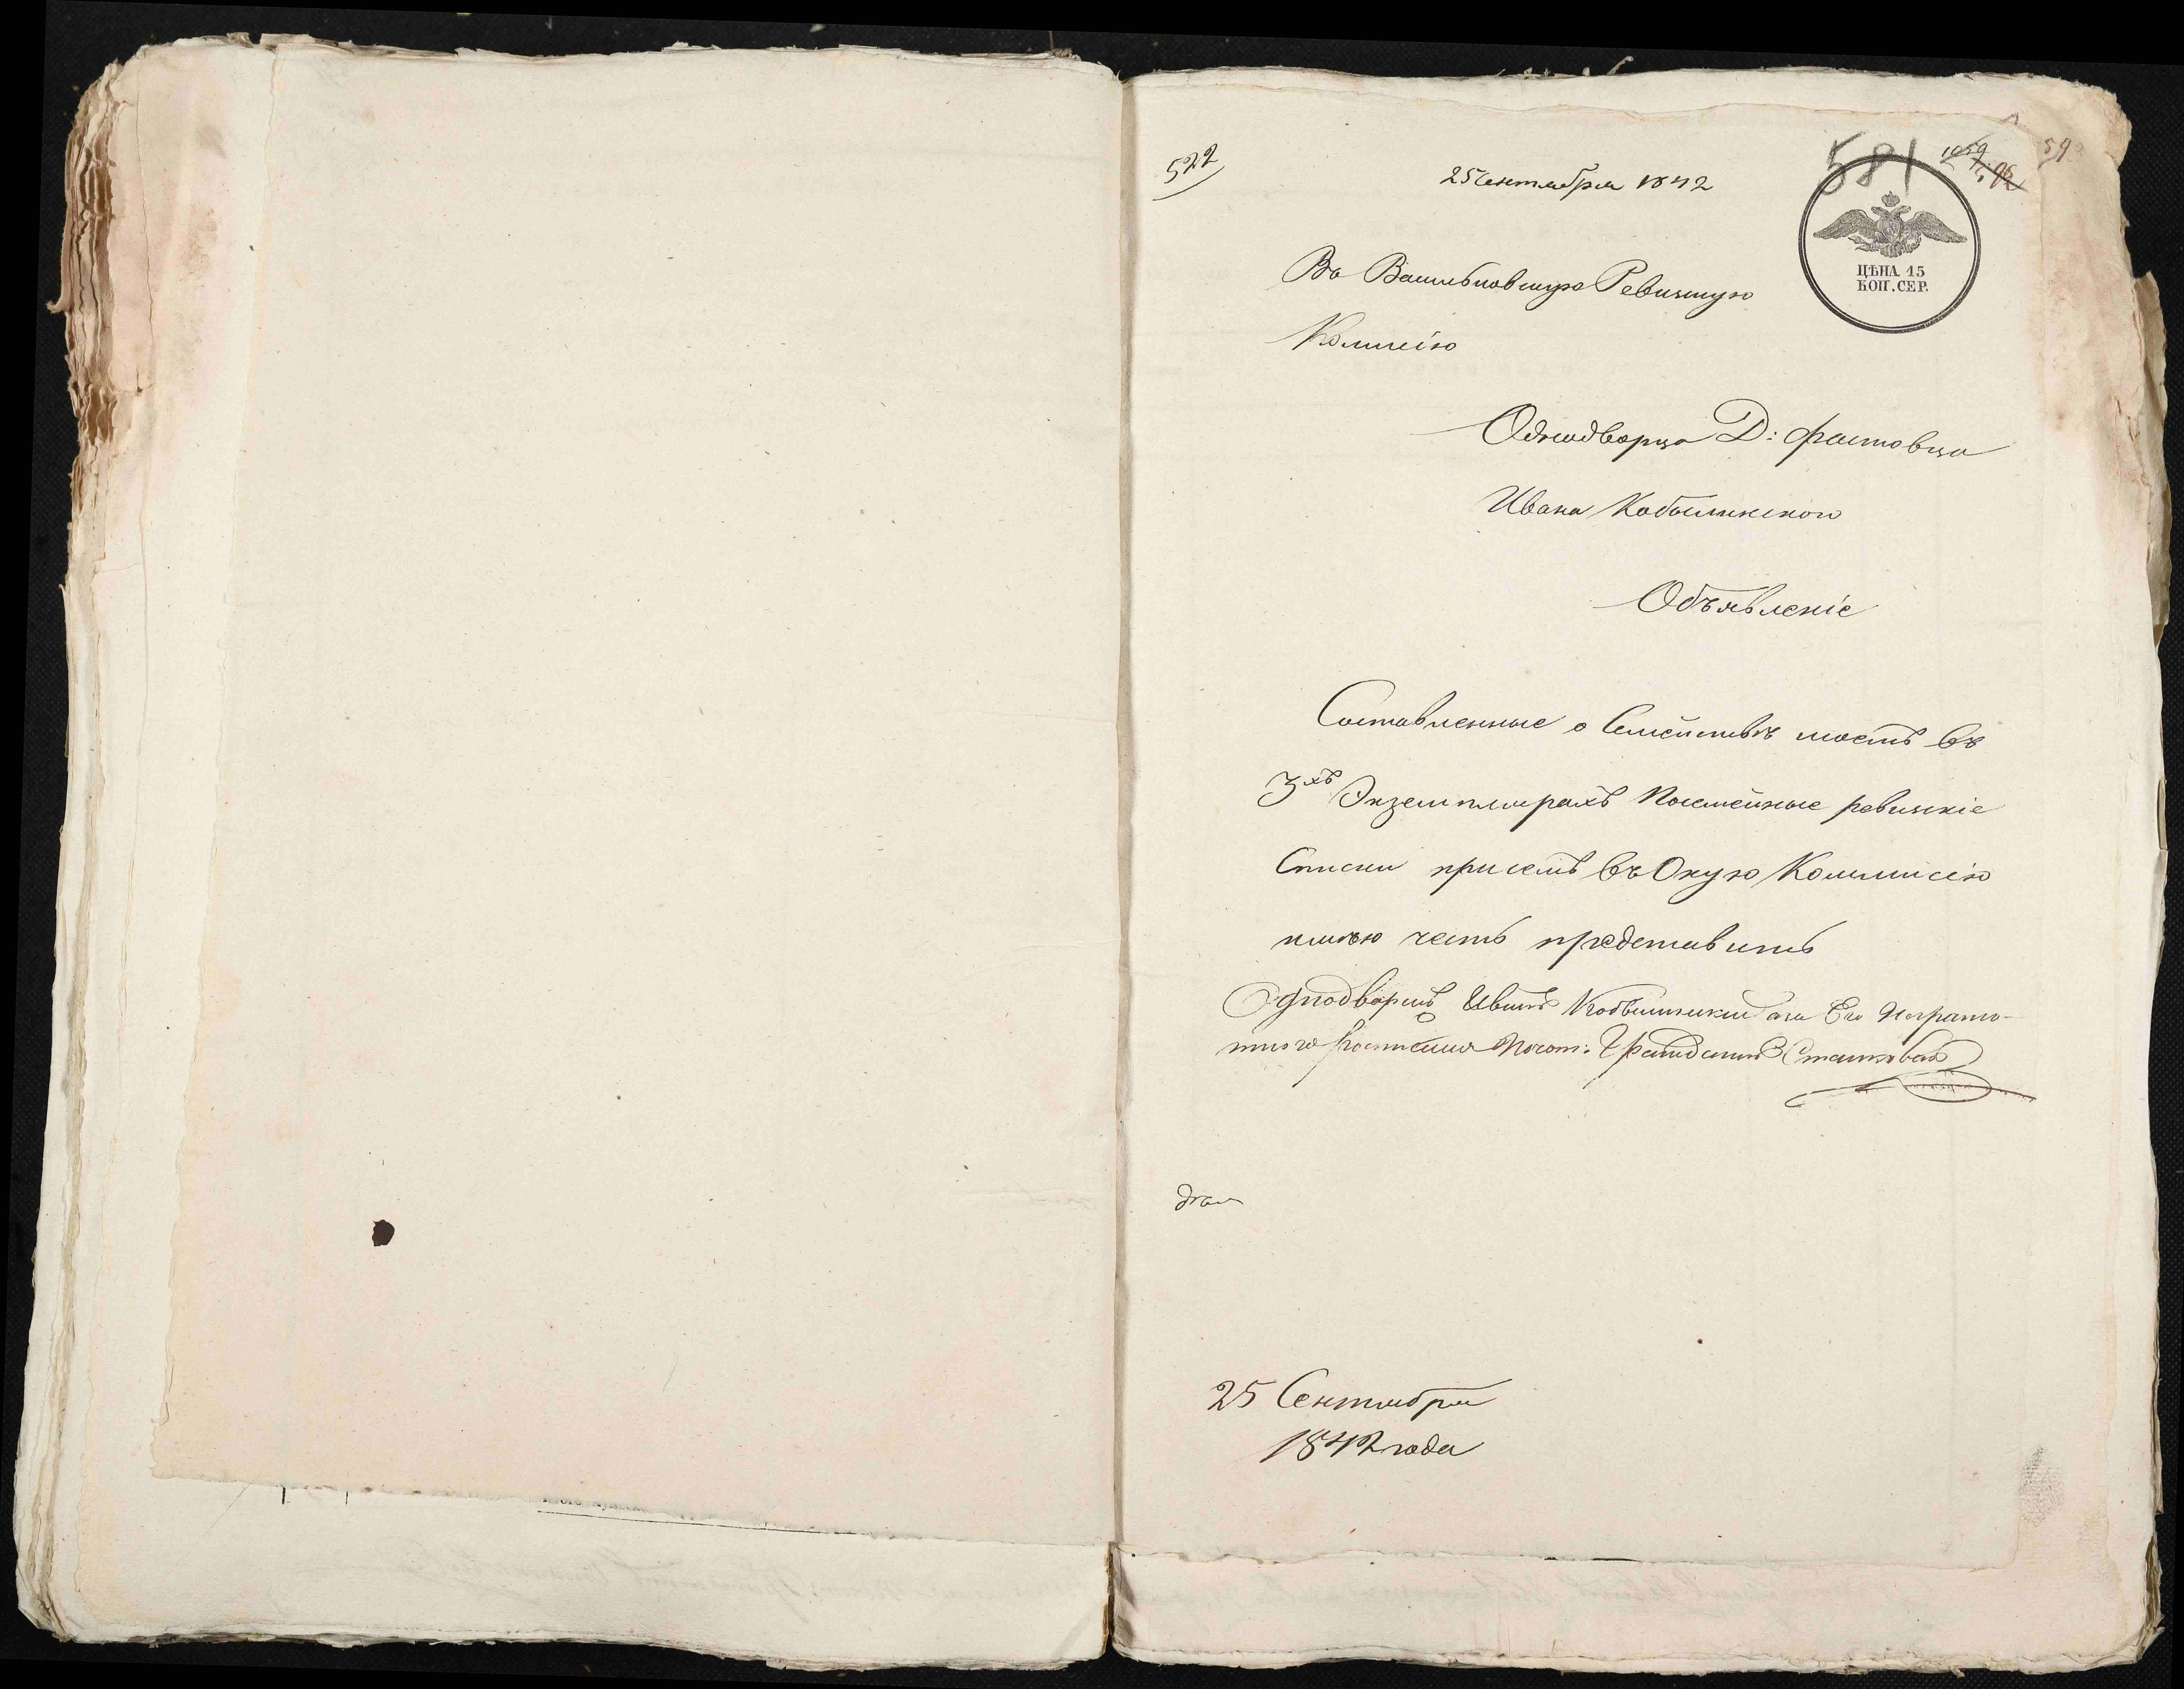 522
25 Сентября 1842
581
1059
59
ЦѢНА 15
КОП. СЕР.
Въ Васильковскую Ревизкую
Комисію
Однодворца Д: Фастовца
Ивана Кобылинского
Объявленіе
Составленные о Семействѣ моемъ въ
3хъ Экземплярахъ Посемейные ревизкіе
Списки присемъ въ Оную Коммисію
имѣю честь представить
Однодворецъ Иванъ Кобылинский а за Его Неграмо-
тного росписался Почот: Гражданинъ
25 Сентября
1842 года